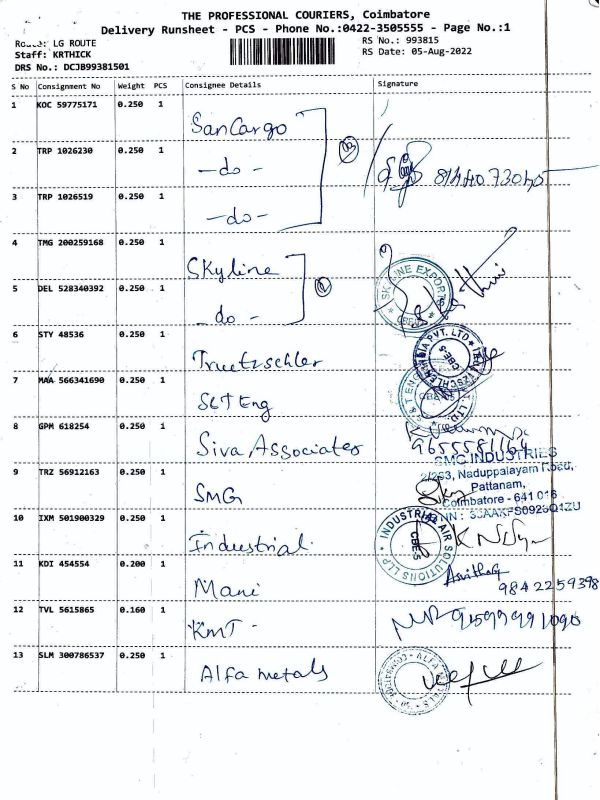 THE PROFESSIONAL COURIERS, Coimbatore
Delivery Runsheet - PCS - Phone No.:0422-3505555 - Page No.:1
Route: LG ROUTE
RS No.: 993815
Staff: KRTHICK
RS Date: 05-Aug-2022
DRS No.: DCJB99381501
S No Consignment No Weight PCS Consignee Details Signature
1 KOC 59775171 0.250 1 SanCargo
2 TRP 1026230 0.250 1 -do-
3 TRP 1026519 0.250 1 -do-
4 TMG 200259168 0.250 1 Skyline
5 DEL 528340392 0.250 1 -do-
SKYLINE EXPORTS
6 STY 48536 0.250 1 Truetzschler
7 MAA 566341690 0.250 1 S&T Eng
8 GPM 618254 0.250 1 Siva Associates
9655581164
9 TRZ 56912163 0.250 1 SMG
SMG INDUSTRIES
2/263, Naduppalayam Road,
Pattanam,
Coimbatore - 641 016
10 IXM 501900329 0.250 1 Industrial
INDUSTRIAL AIR SOLUTIONS LLP
CBE-5
11 KDI 454554 0.200 1 Mani
9842259398
12 TVL 5615865 0.160 1 KMT -
13 SLM 300786537 0.250 1 Alfa metals